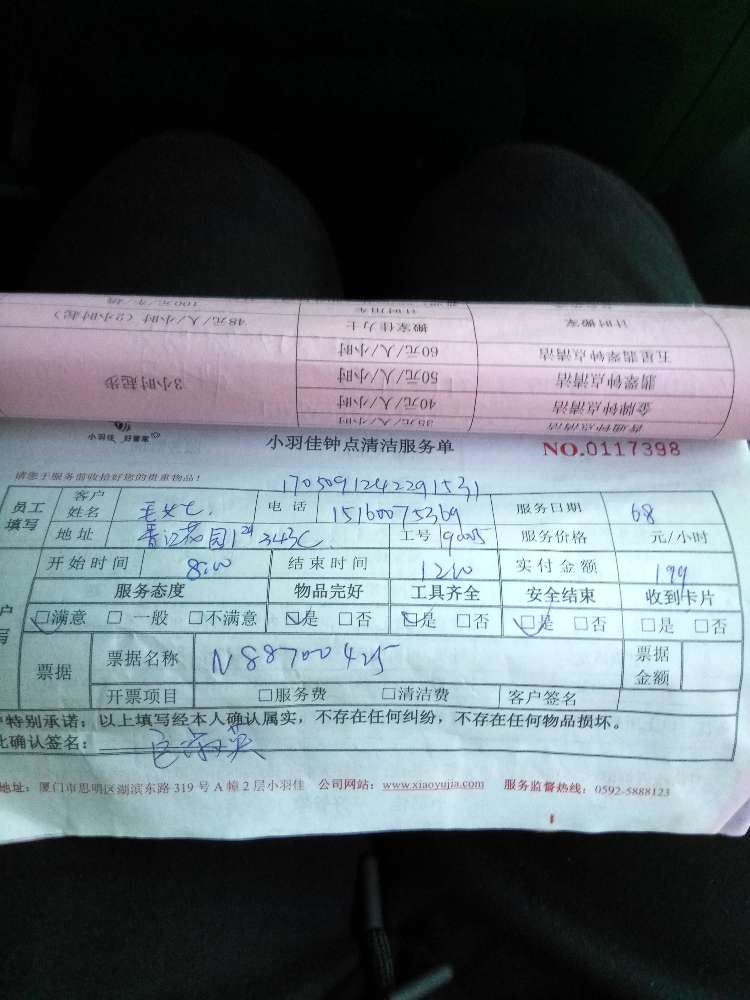 计时搬家 搬家佳力士 48元/人/小时（2小时起）
计时用车 100元/车/趟
五星翡翠钟点清洁 60元/人/小时
翡翠钟点清洁 50元/人/小时 3小时起步
金牌钟点清洁 40元/人/小时
普通钟点清洁 35元/人/小时
小羽佳 好管家 小羽佳钟点清洁服务单 NO.0117398
请您于服务前收拾好您的贵重物品！
1705091242291531
员工填写 客户姓名 毛女士 电话 15160075369 服务日期 68
地址 晋江花园 343C 工号 19005 服务价格 元/小时
开始时间 8:00 结束时间 1200 实付金额 199
服务态度 物品完好 工具齐全 安全结束 收到卡片
□满意 □一般 □不满意 □是 □否 □是 □否 □是 □否 □是 □否
票据 票据名称 N88700425 票据金额
开票项目 □服务费 □清洁费 客户签名
户特别承诺：以上填写经本人确认属实，不存在任何纠纷，不存在任何物品损坏。
此确认签名：
地址：厦门市思明区湖滨东路319号A幢2层小羽佳 公司网站：www.xiaoyujia.com 服务监督热线：0592-5888123